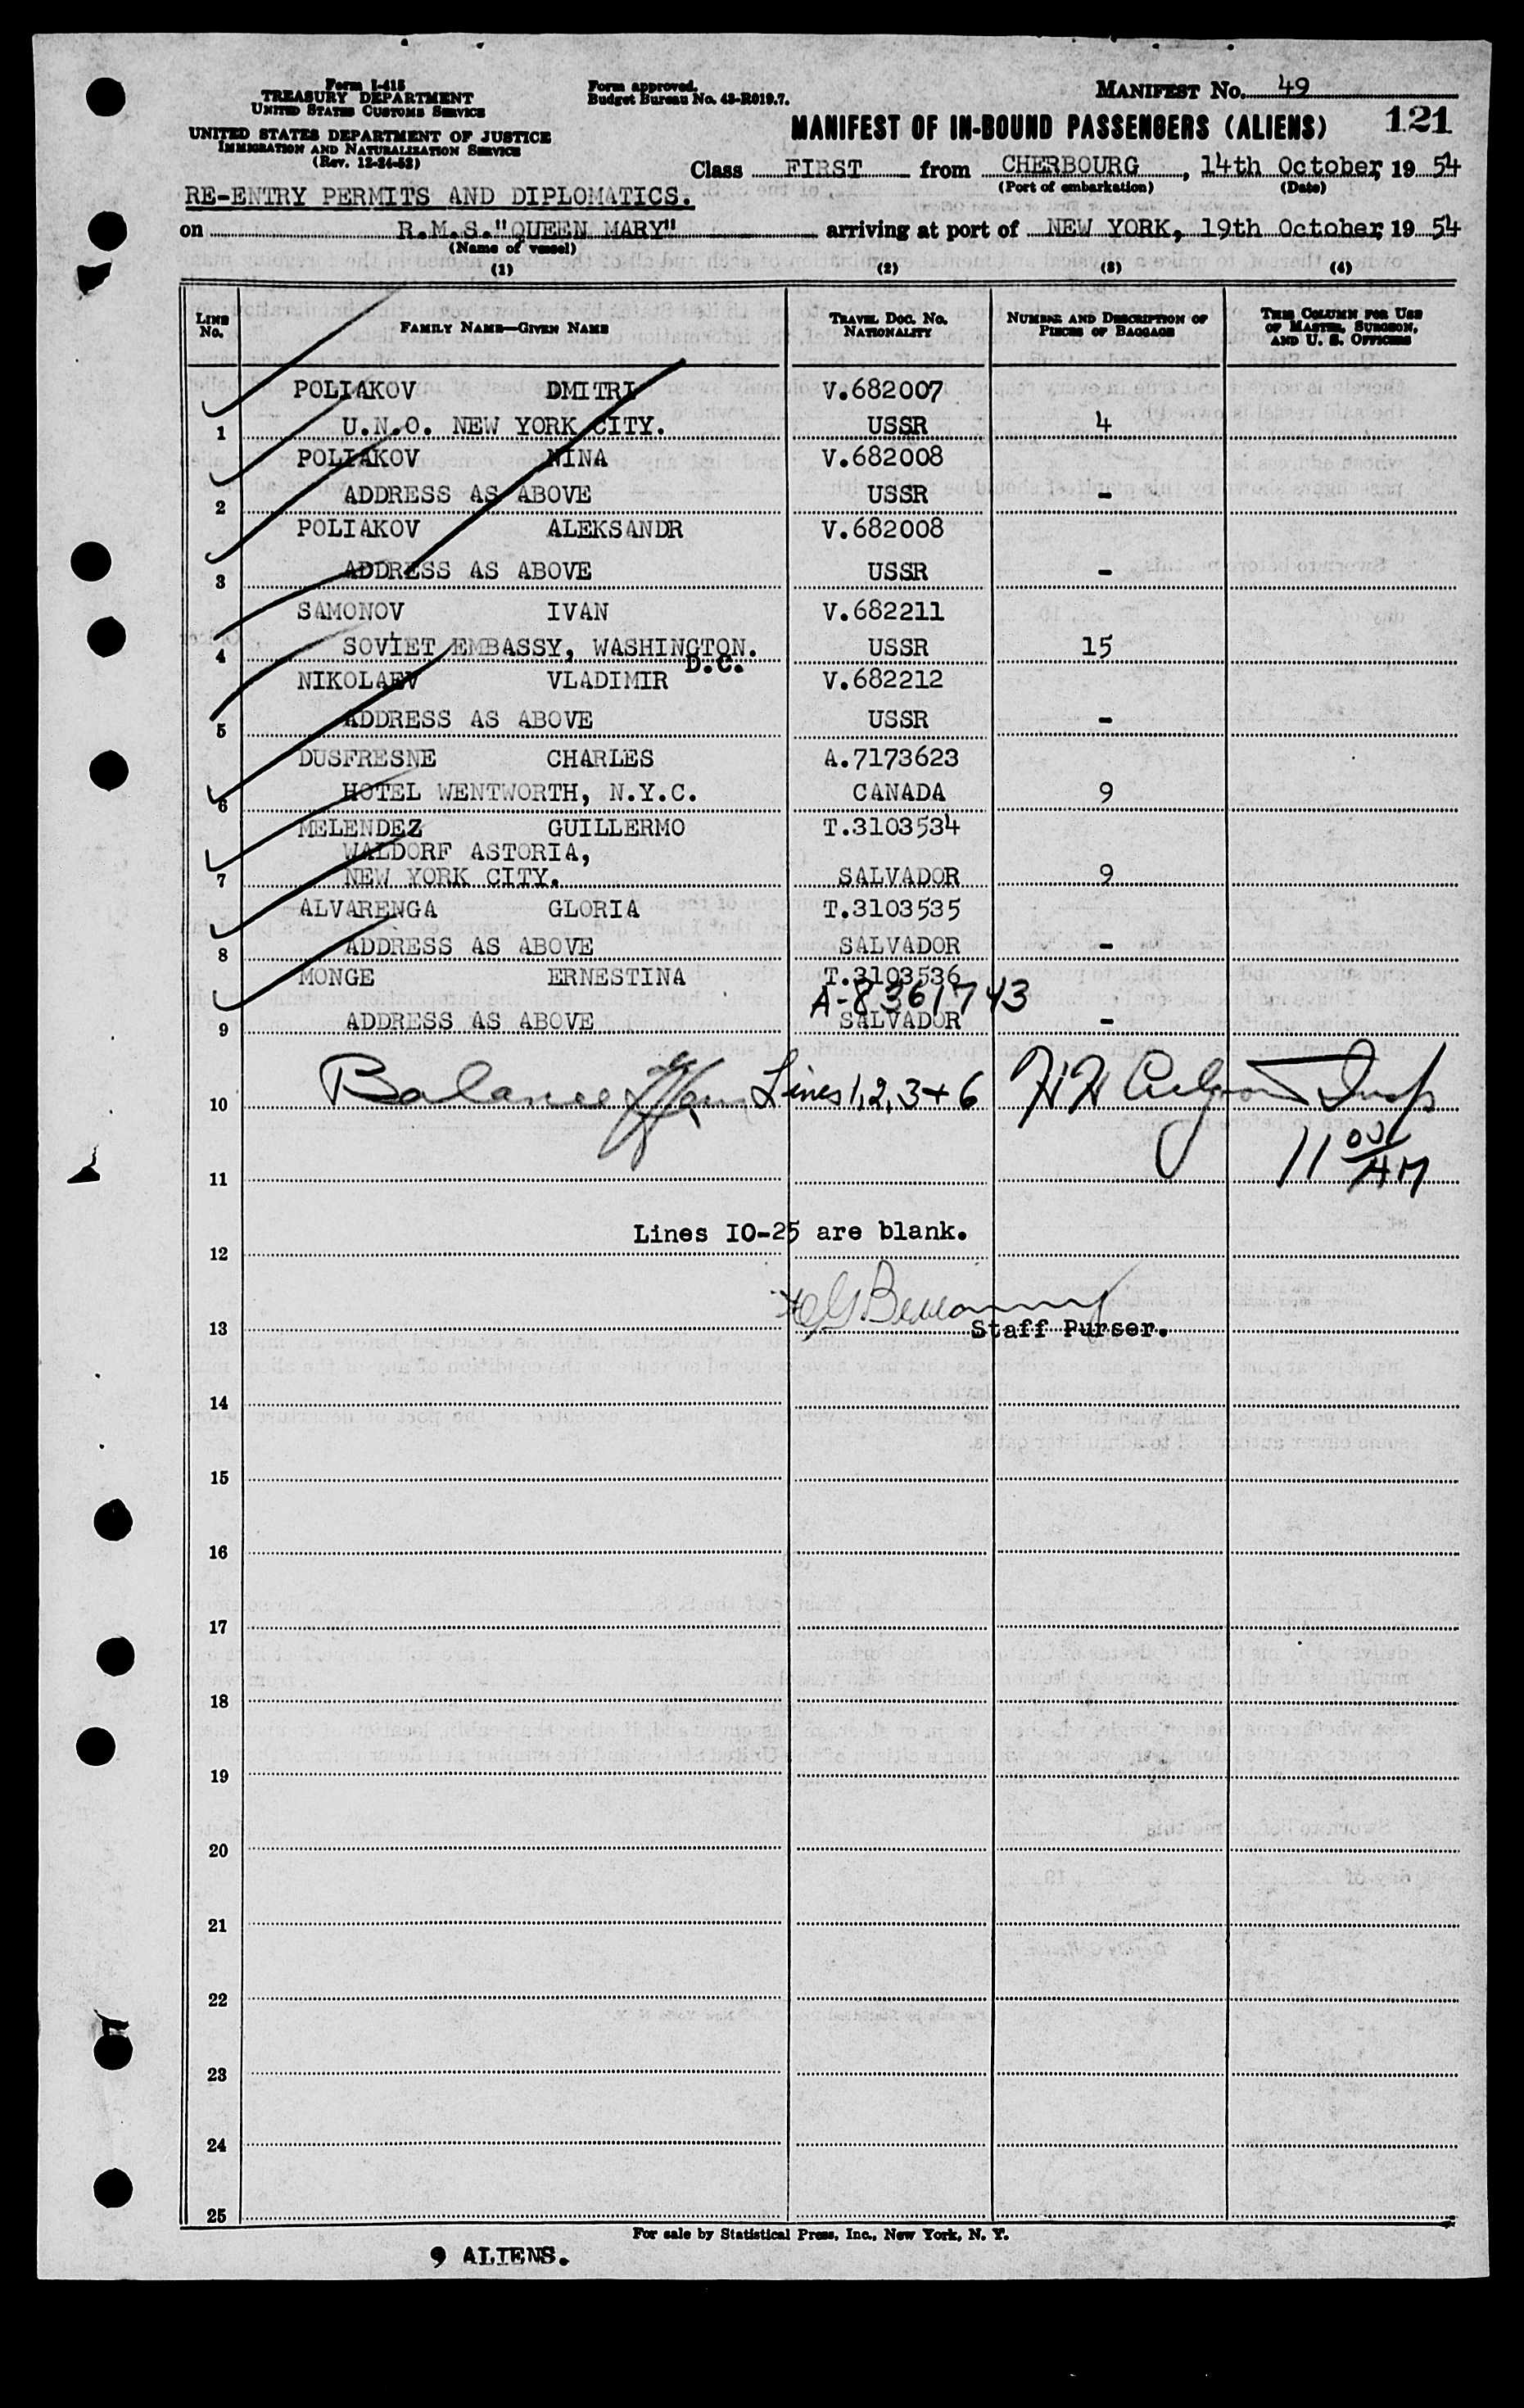 Form I-415
TREASURY DEPARTMENT
UNITED STATES CUSTOMS SERVICE
UNITED STATES DEPARTMENT OF JUSTICE
IMMIGRATION AND NATURALIZATION SERVICE
(Rev. 12-24-52)
Form approved.
Budget Bureau No. 43-R019.7.
MANIFEST No. 49
121
MANIFEST OF IN-BOUND PASSENGERS (ALIENS)
Class FIRST from CHERBOURG, 14th October, 1954
(Port of embarkation) (Date)
RE-ENTRY PERMITS AND DIPLOMATICS.
on R.M.S."QUEEN MARY" arriving at port of NEW YORK, 19th October, 1954
(Name of vessel)
(1) (2) (3) (4)
LINE No. FAMILY NAME—GIVEN NAME TRAVEL DOC. NO. NATIONALITY NUMBER AND DESCRIPTION OF PIECES OF BAGGAGE THIS COLUMN FOR USE OF MASTER, SURGEON, AND U. S. OFFICERS
POLIAKOV DMITRI V.682007
1 U.N.O. NEW YORK CITY. USSR 4
POLIAKOV NINA V.682008
2 ADDRESS AS ABOVE USSR -
POLIAKOV ALEKSANDR V.682008
3 ADDRESS AS ABOVE USSR -
SAMONOV IVAN V.682211
4 SOVIET EMBASSY, WASHINGTON. D.C. USSR 15
NIKOLAEV VLADIMIR V.682212
5 ADDRESS AS ABOVE USSR -
DUSFRESNE CHARLES A.7173623
6 HOTEL WENTWORTH, N.Y.C. CANADA 9
MELENDEZ GUILLERMO T.3103534
WALDORF ASTORIA,
7 NEW YORK CITY. SALVADOR 9
ALVARENGA GLORIA T.3103535
8 ADDRESS AS ABOVE SALVADOR -
MONGE ERNESTINA T.3103536
A-8361743
9 ADDRESS AS ABOVE SALVADOR -
10 Balance Lines 1,2,3+6 Insp
11 00 AM
11
Lines IO-25 are blank.
12
13 Staff Purser.
14
15
16
17
18
19
20
21
22
23
24
25
For sale by Statistical Press, Inc., New York, N. Y.
9 ALIENS.